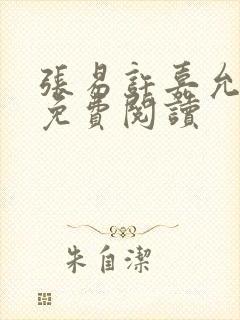 張易許嘉允
免費閱讀
朱自潔